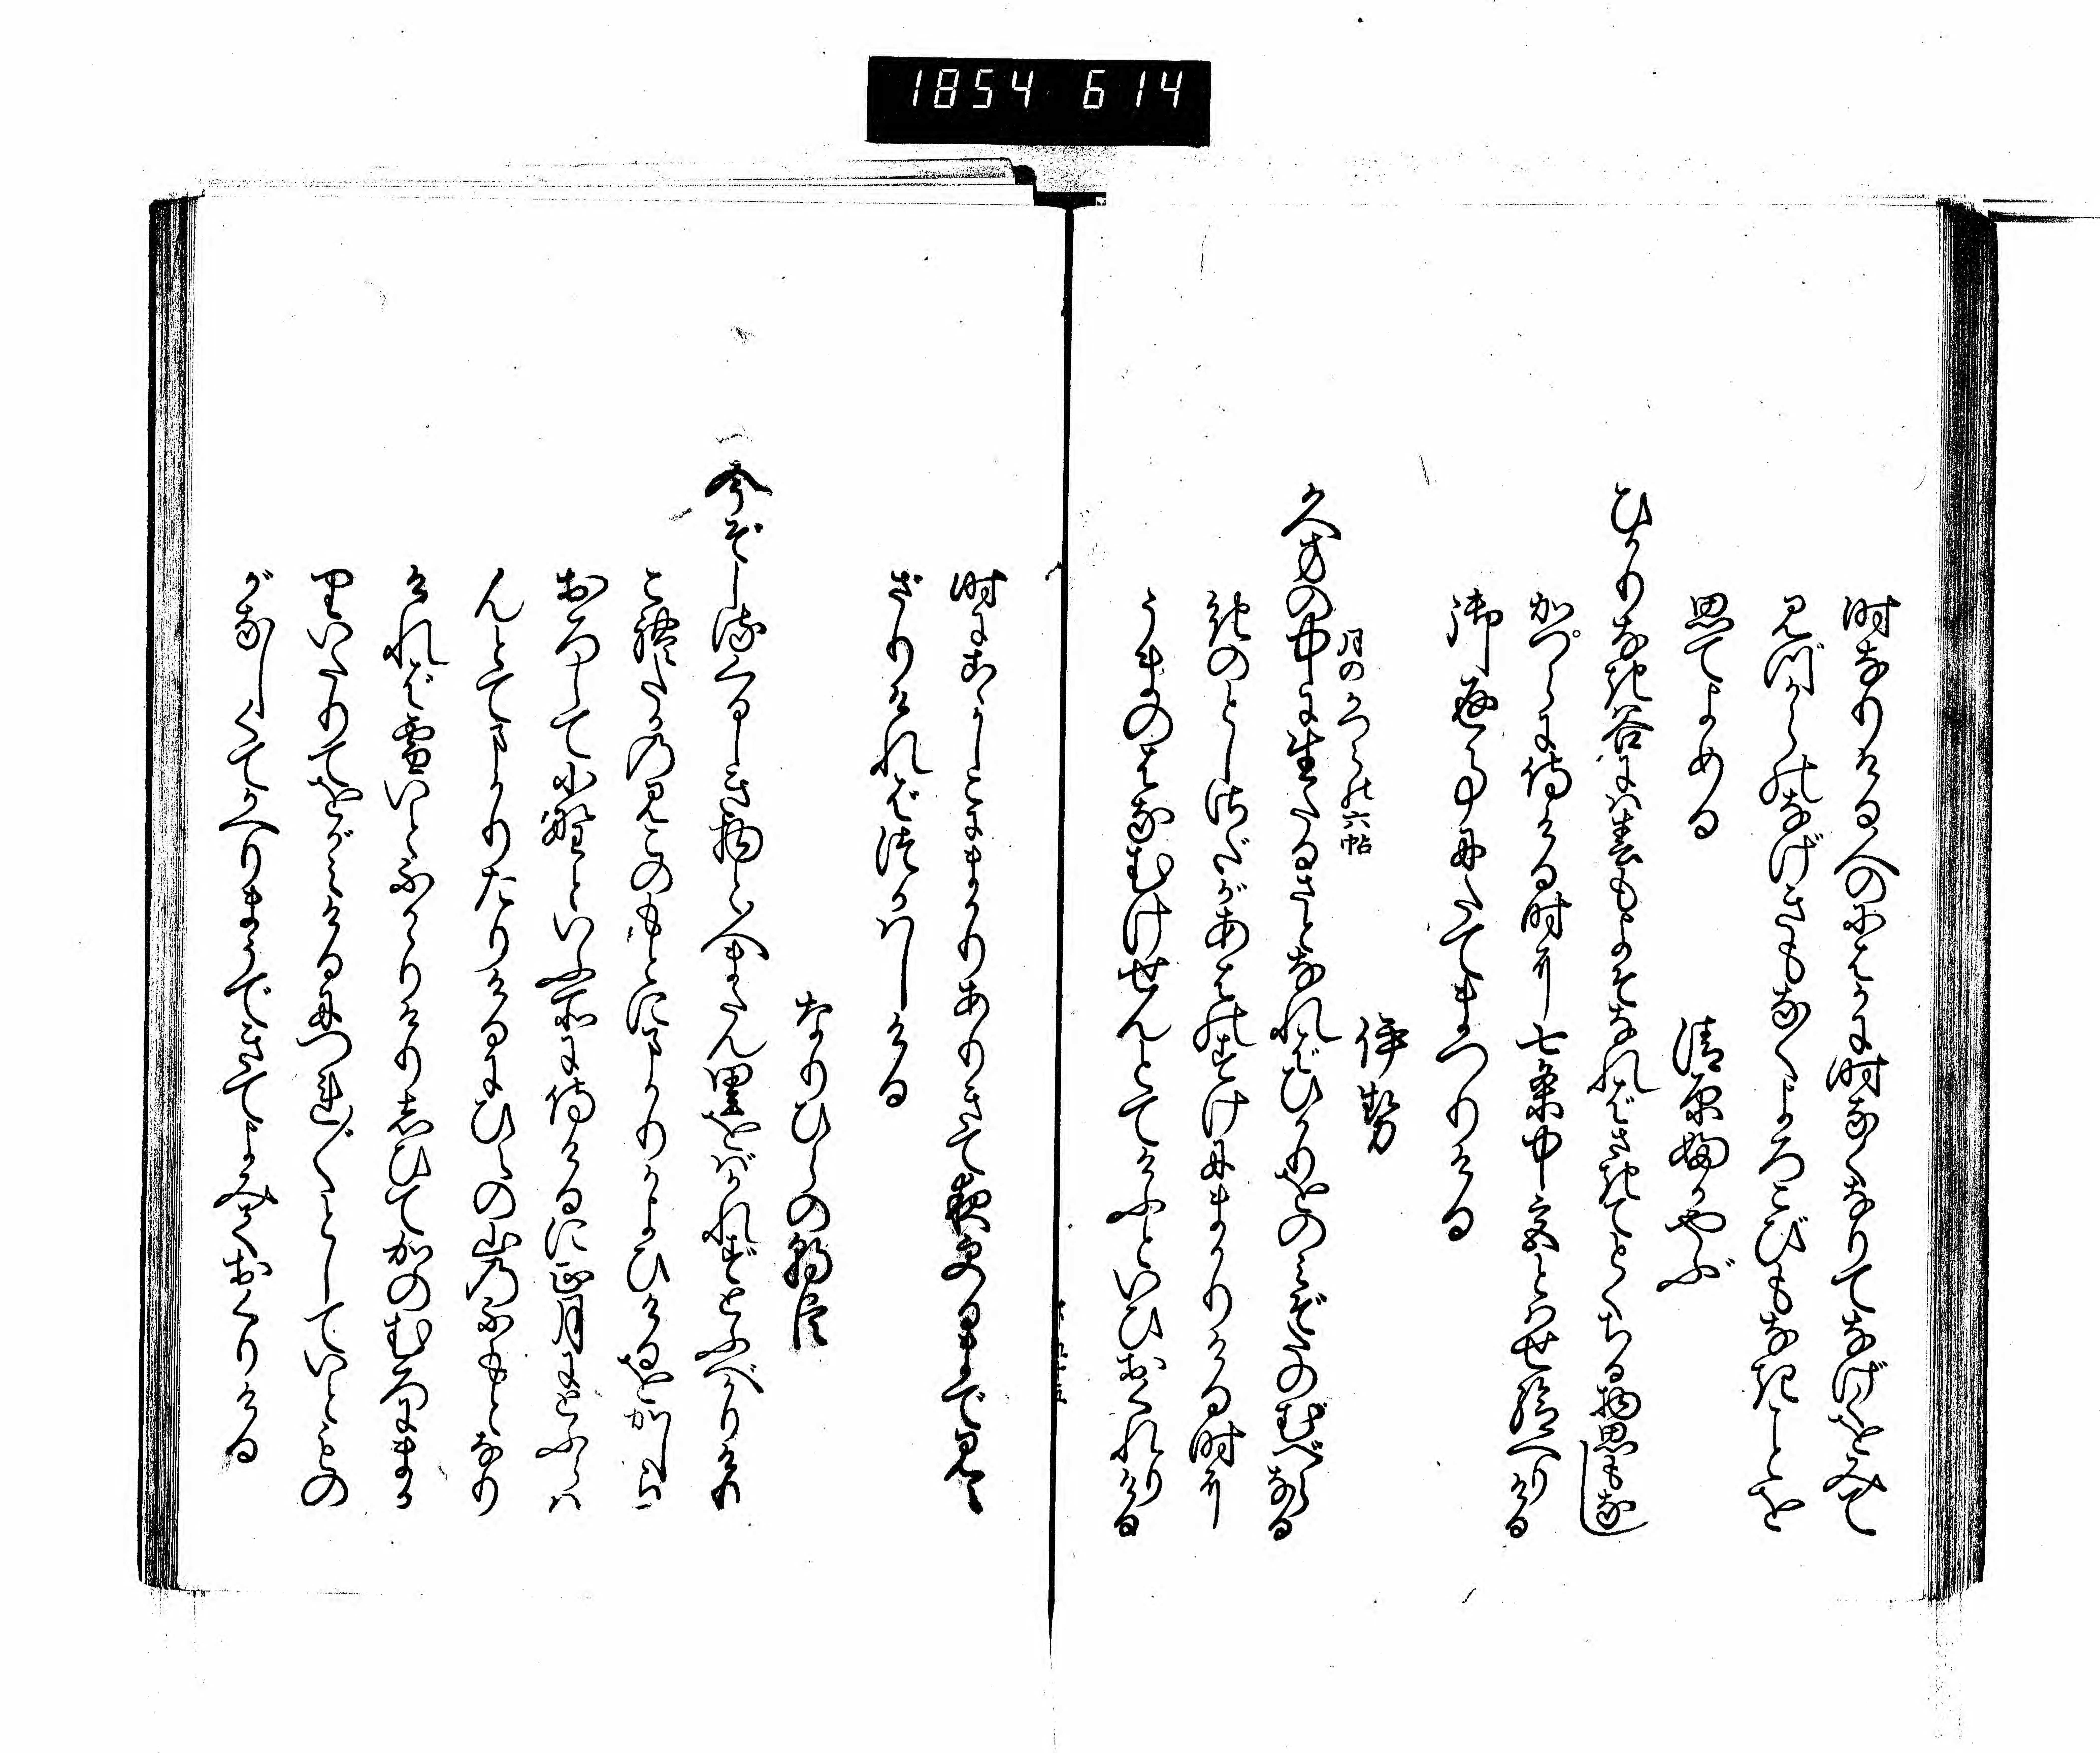 1854 614
時なりける人のにはかに時なくなりてなげくをみて
見づからのなげきもなくよろこびもなきことを
思てよめる
清原ふかやぶ
ひかりなき谷には春もよそなればさきてとくちる物思もなし
かつらに侍ける時に七条中宮とはせ給へりける
御返事にたてまつりける
伊勢
月のかつらの六帖
久方の中に生たるさとなればひかりをのみぞたのむべらなる
きのとしさだがあはのすけにまかりける時に
うまのはなむけせんとてけふといひおくれりける
時にこゝかしこにまかりありきて夜更るまで見え
ざりければつかはしける
なりひらの朝臣
今ぞしるくるしき物と人またん里をばかれずとふべかりけり
これたかのみこのもとにまかりかよひけるをかしら
おろして小野といふ所に侍けるに正月にとふらは
んとてまかりたりけるにひえの山のふもとなり
ければ雪いとふかゝりけりしひてかのむろにまか
りいたりてをがみけるにつれ〴〵としていともの
がなしくてかへりまうできてよみておくりける